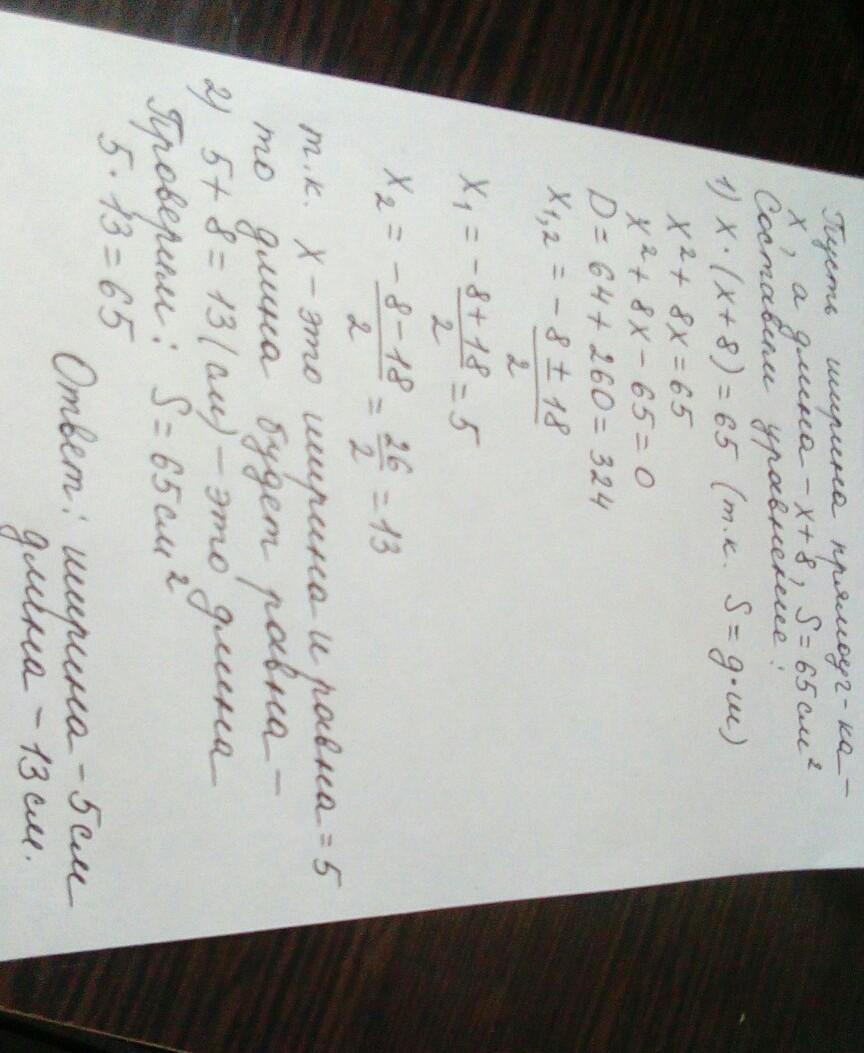 Пусть ширина прямоуг-ка –
x, а длина – x+8, S=65см²
Составим уравнение:
1) x·(x+8)=65 (т.к. S=д·ш)
x²+8x=65
x²+8x-65=0
D=64+260=324
x₁,₂ = -8±18/2
x₁ = -8+18/2 = 5
x₂ = -8-18/2 = 26/2 = 13
т.к. x – это ширина и равна = 5
то длина будет равна –
2) 5+8=13(см) – это длина
Проверим: S=65см²
5·13=65
Ответ: ширина – 5см
длина – 13см.